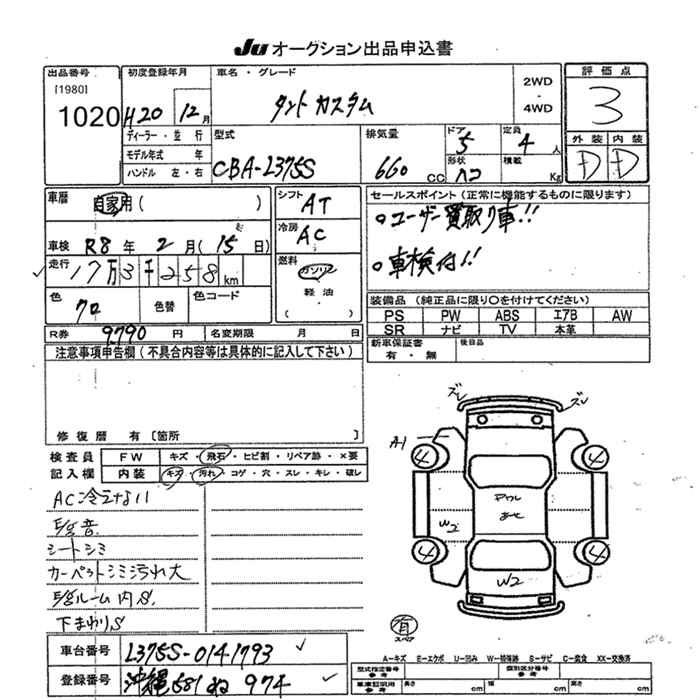 Ju オークション出品申込書
出品番号
[1980]
1020
初度登録年月
H20 年 12 月
車名・グレード
タント カスタム
2WD
・
4WD
評価点
3
外装 内装
D D
ディーラー・並 行
モデル年式 年
ハンドル 左・右
型式
CBA-L375S
排気量
660 CC
ドア
5
形状
定員
4 人
積載
Kg
車歴
自家用( )
車検 R8 年 2 月 (15 日)
走行 17 万 3 千 258 km
色
クロ
色替
色コード
シフト
AT
冷房
AC
燃料
ガソリン
軽油
( )
セールスポイント(正常に機能するものに限ります)
ユーザー買取り車!!
車検付!!
装備品 (純正品に限り○を付けてください)
PS PW ABS エアB AW
SR ナビ TV 本革
R券 9790 円
名変期限 月 日
新車保証書
有・無
後日品
注意事項申告欄(不具合内容等は具体的に記入して下さい)
修復歴 有 〔箇所 〕
検査員
記入欄
FW キズ・飛石・ヒビ割・リペア跡・×要
内装 キズ・汚れ・コゲ・穴・スレ・キレ・破レ
AC冷えない
シートシミ
カーペットシミ汚れ大
下まわりS
ズレ
ズレ
A1
4
4
W2
4
4
W2
有
スペア
車台番号 L375S-0141793
登録番号 沖縄 581 ぬ 974
A-キズ E-エクボ U-凹み W-補修跡 S-サビ C-腐食 XX-交換済
型式指定番号
参考
類別区分番号
参考
車庫証明用
参考
長さ cm 幅 cm 高さ cm